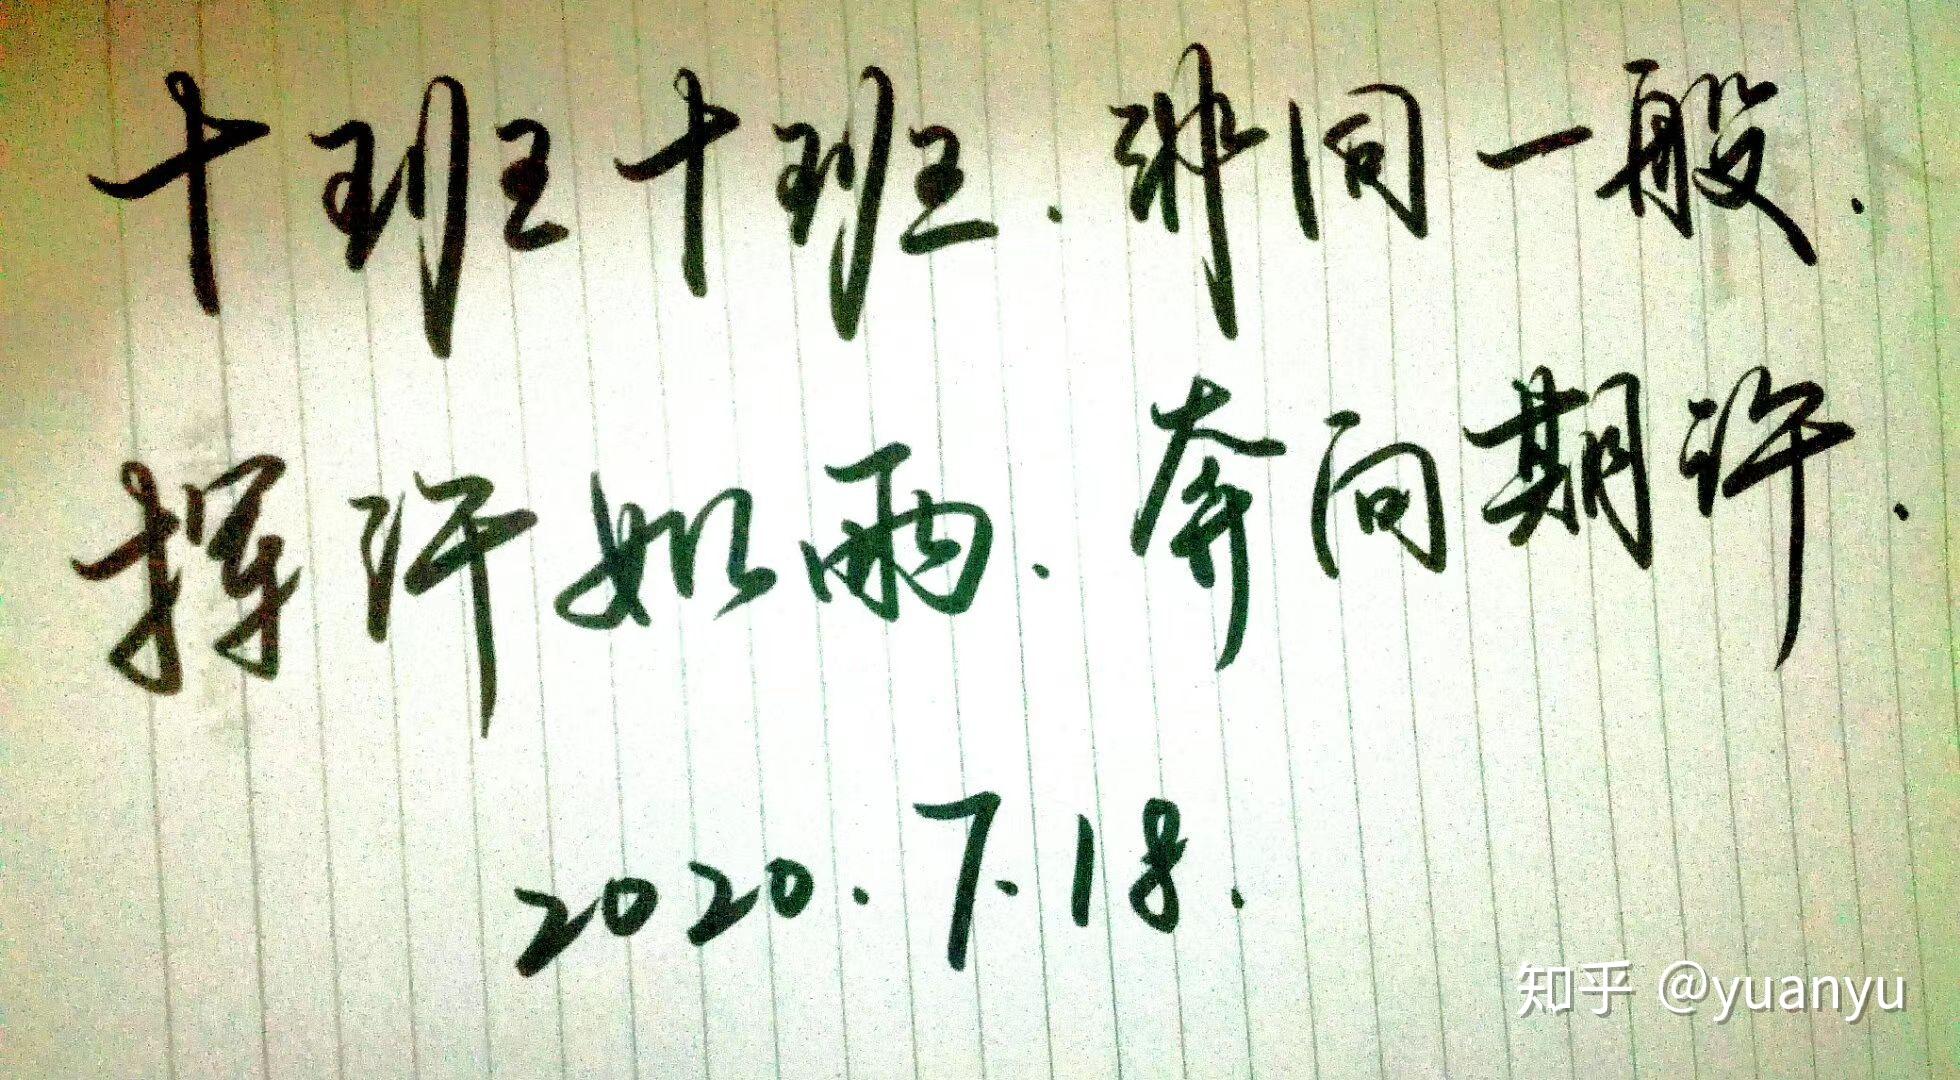 十班十班.非同一般.
挥汗如雨.奔向期许.
2020.7.18.
知乎 @yuanyu